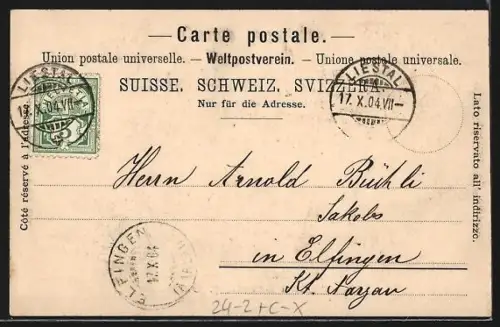 Carte postale.
Union postale universelle. — Weltpostverein. — Unione postale universale.
SUISSE. SCHWEIZ. SVIZZERA.
Nur für die Adresse.
Côté réservé à l'adresse.
Lato riservato all' indirizzo.
LIESTAL
17. X. 04. VII—
LIESTAL
17. X. 04. VII—
Herrn Arnold Büchli
Jakobs
in Elfingen
Kt. Aargau
ELFINGEN
17. X 04
24-2+C-X